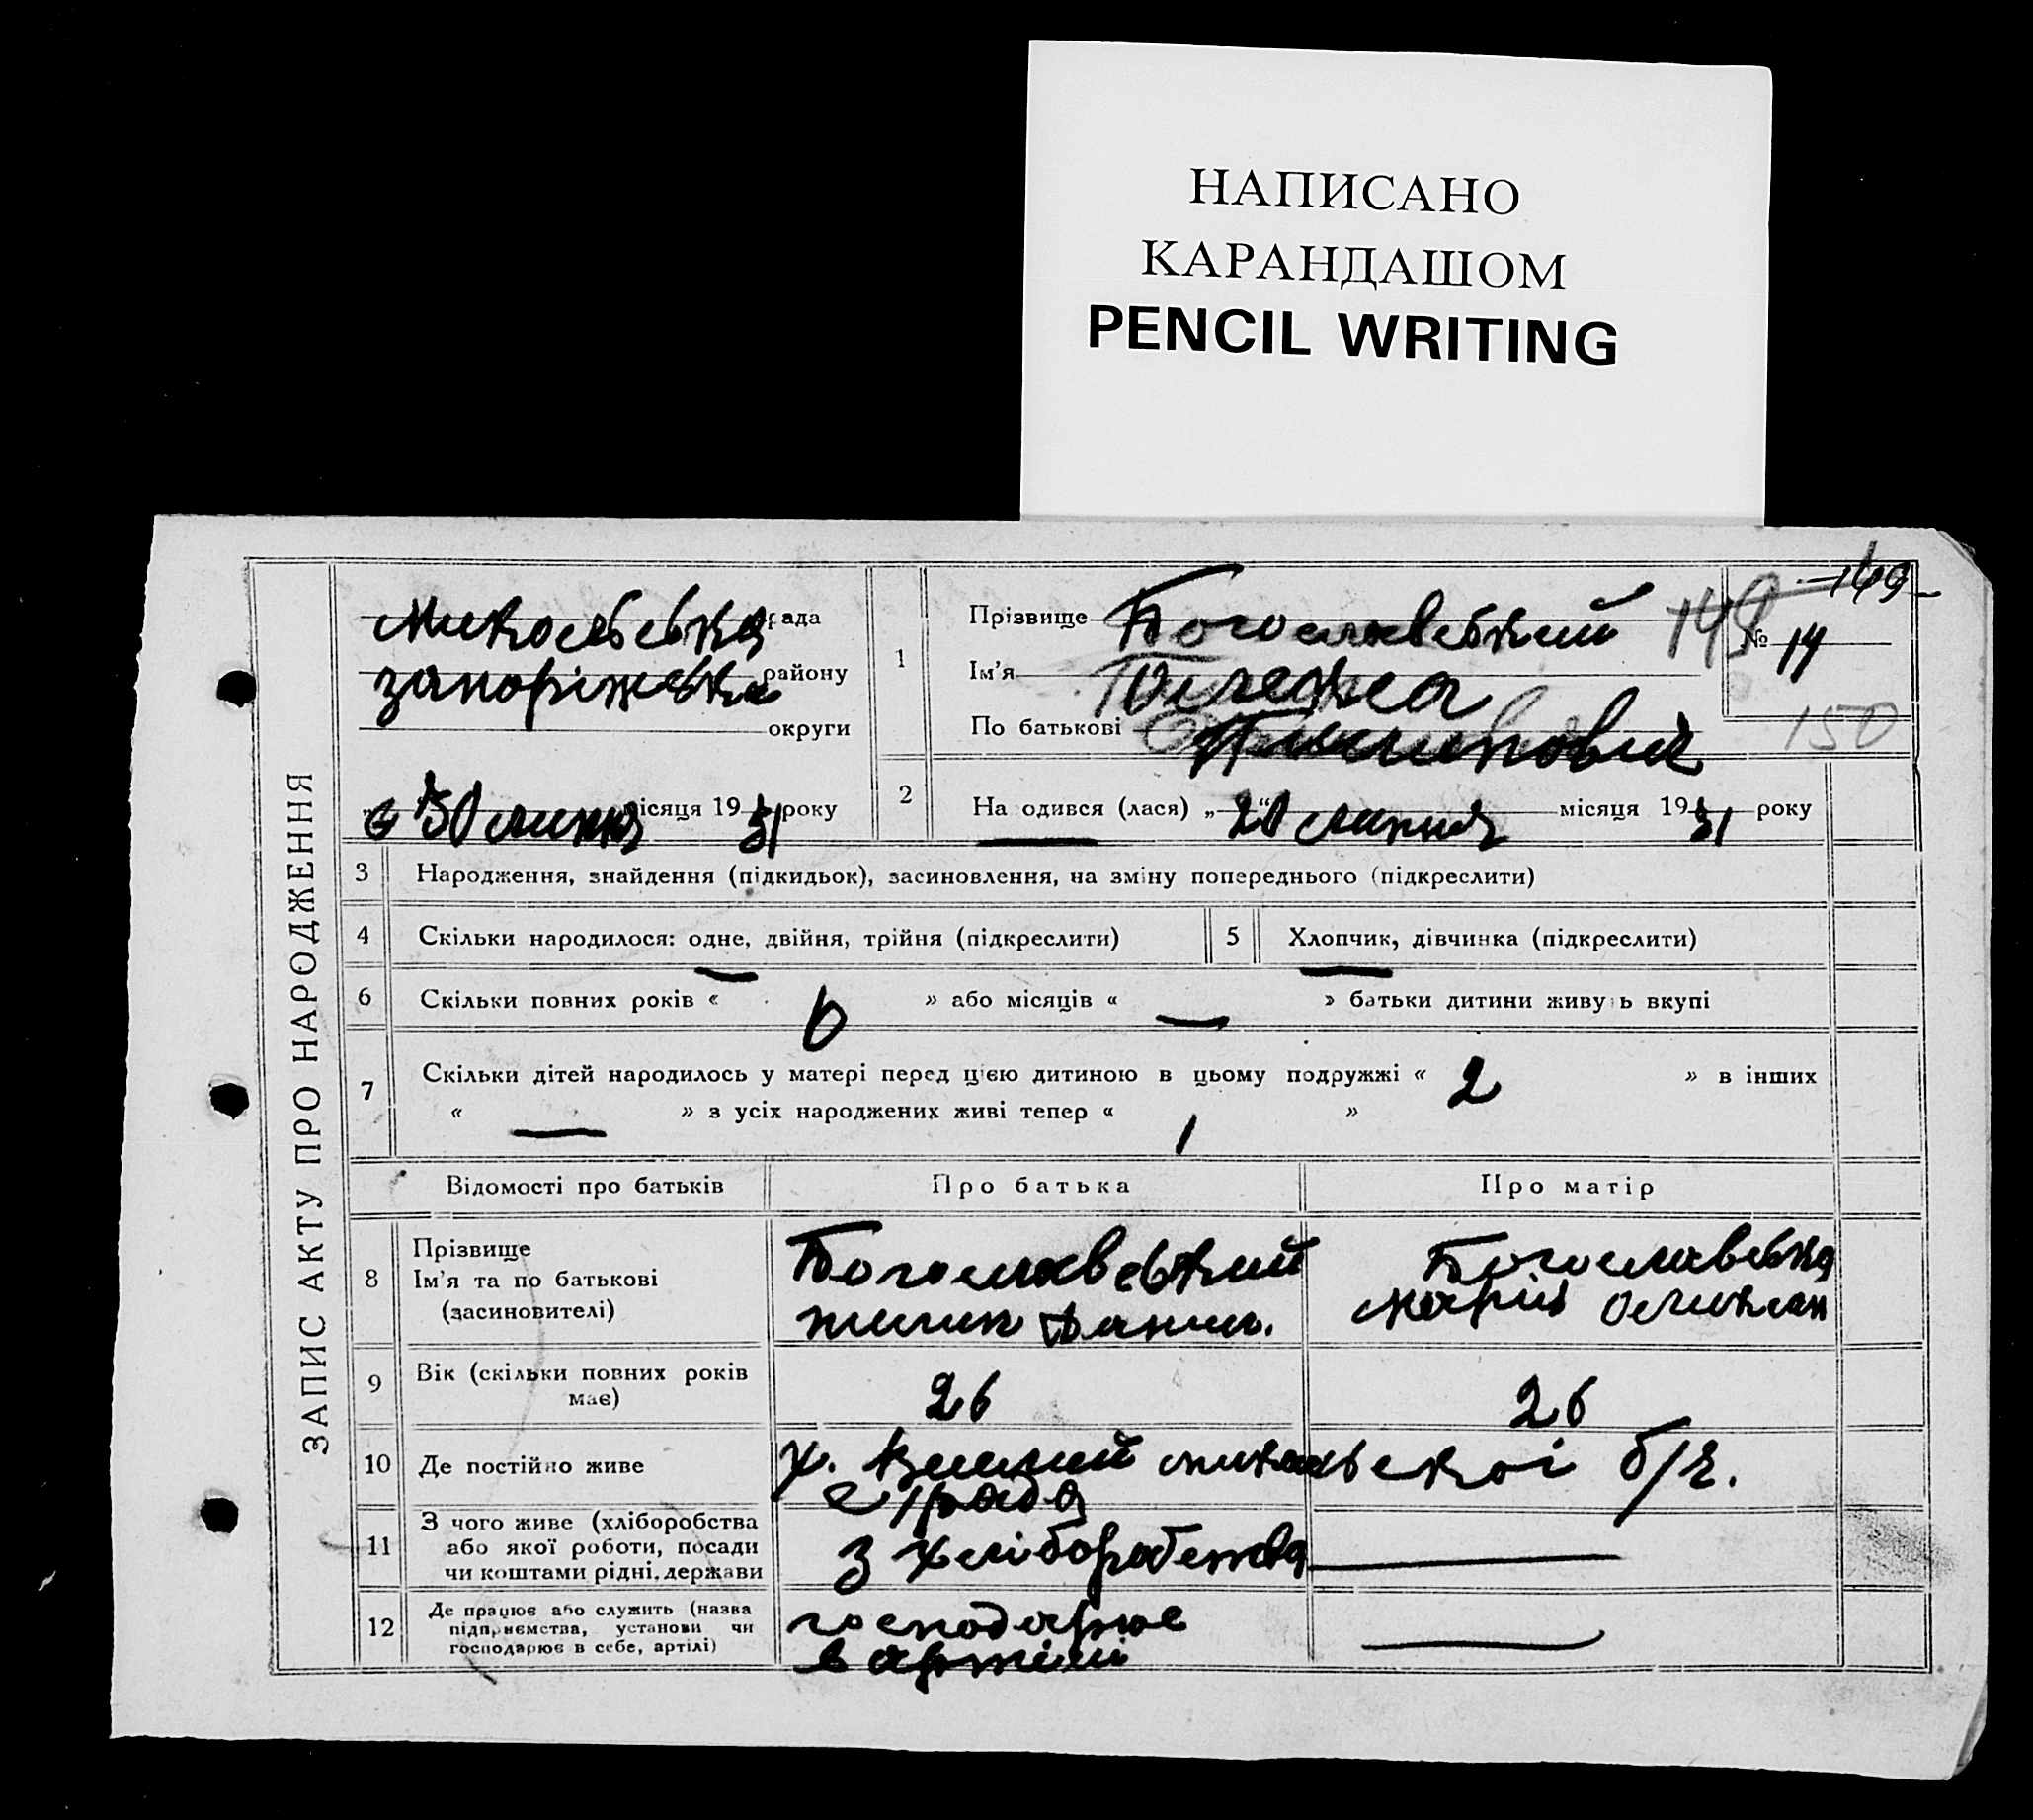 НАПИСАНО
КАРАНДАШОМ
PENCIL WRITING
ЗАПИС АКТУ ПРО НАРОДЖЕННЯ
рада
району
округи
30 липня місяця 1931 року
1
Прізвище Богославський
Ім'я
По батькові
149
169
№ 14
150
2
На одився (лася) „20“ липня місяця 1931 року
3 Народження, знайдення (підкидьок), засиновлення, на зміну попереднього (підкреслити)
4 Скільки народилося: одне, двійня, трійня (підкреслити) 5 Хлопчик, дівчинка (підкреслити)
6 Скільки повних років « 6 » або місяців « — » батьки дитини живуть вкупі
7 Скільки дітей народилось у матері перед цією дитиною в цьому подружжі « 2 » в інших
« — » з усіх народжених живі тепер « 1 »
Відомості про батьків Про батька Про матір
8 Прізвище
Ім'я та по батькові
(засиновителі)
Богославський
Данил.
Богославська
Марія
9 Вік (скільки повних років
має)
26 26
10 Де постійно живе х.
с/рада
11 З чого живе (хліборобства
або якої роботи, посади
чи коштами рідні, держави
з хліборобства —
12 Де працює або служить (назва
підприємства, установи чи
господарює в себе, артілі)
господарює
в артілі
—